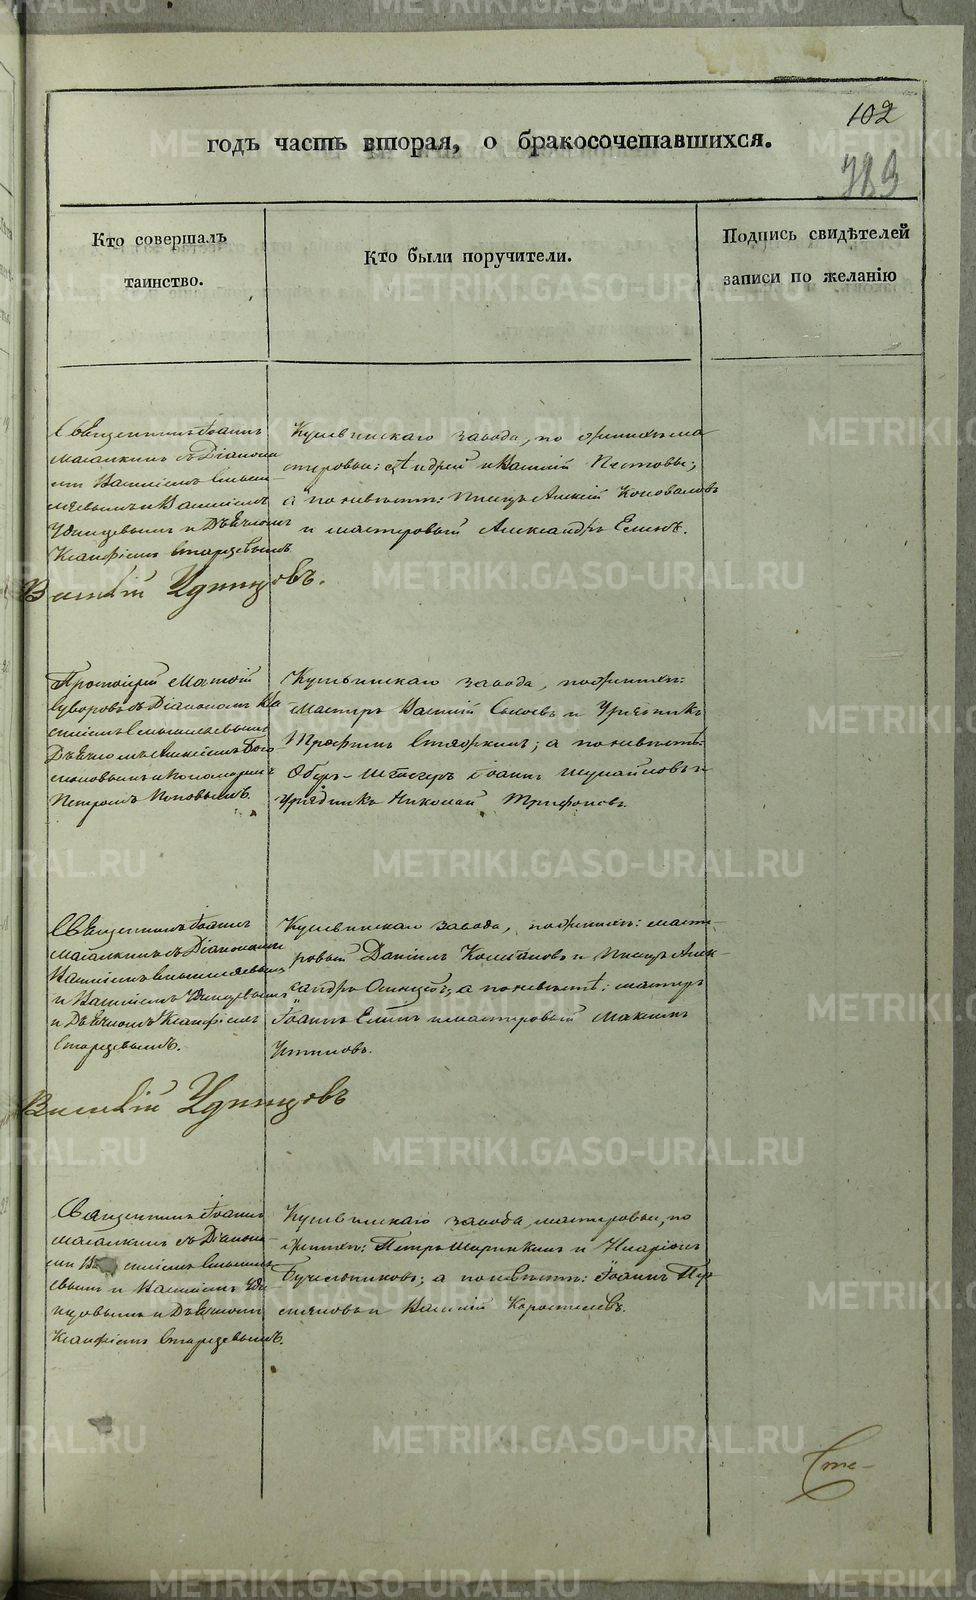 102
годъ часть вторая, о бракосочетавшихся.
789
Кто совершалъ
таинство.
Кто были поручители.
Подпись свидѣтелей
записи по желанію
Священникъ Іоаннъ
Магаскинъ съ Діакона
ми Василіемъ
и Василіемъ
Удинцевымъ и Дьячкомъ
Ксанфіемъ Старцевымъ
Василій Удинцовъ.
Кушвинскаго завода, по женихѣ ма
стеровые: Андрей и Василій Пестовы;
а по невѣстѣ: Писецъ Алексій Коноваловъ
и мастеровый Александръ Елинъ.
Протоіерей Матѳій
Суворовъ съ Діакономъ Ва
силіемъ
Дьячкомъ Алексіемъ Бого
моловымъ и Пономаремъ
Петромъ Поповымъ.
Кушвинскаго завода, по женихѣ:
Мастеръ Василій Сысоевъ и Урядникъ
Трофимъ; а по невѣстѣ:
Оберъ-Штейгеръ Іоаннъ и
Урядникъ Николай Трифоновъ
Священникъ Іоаннъ
Магаскинъ съ Діаконами
Василіемъ
и Василіемъ Удинцевымъ
и Дьячкомъ Ксанфіемъ
Старцевымъ.
Василій Удинцовъ
Кушвинскаго завода, по женихѣ: масте
ровый Даніилъ и Писецъ Алек
сандръ; а по невѣстѣ: мастеръ
Іоаннъ Елинъ и мастеровый Максимъ
Устиновъ.
Священникъ Іоаннъ
Магаскинъ съ Діакона
ми Василіемъ
и Василіемъ Уди
нцовымъ и Дьячкомъ
Ксанфіемъ Старцевымъ.
Кушвинскаго завода мастеровые, по
женихѣ: Петръ Ширинкинъ и Иларіонъ
Бучельниковъ; а по невѣстѣ: Іоаннъ Пер
мяковъ и Василій Коростелевъ.
Сте-
METRIKI.GASO-URAL.RU